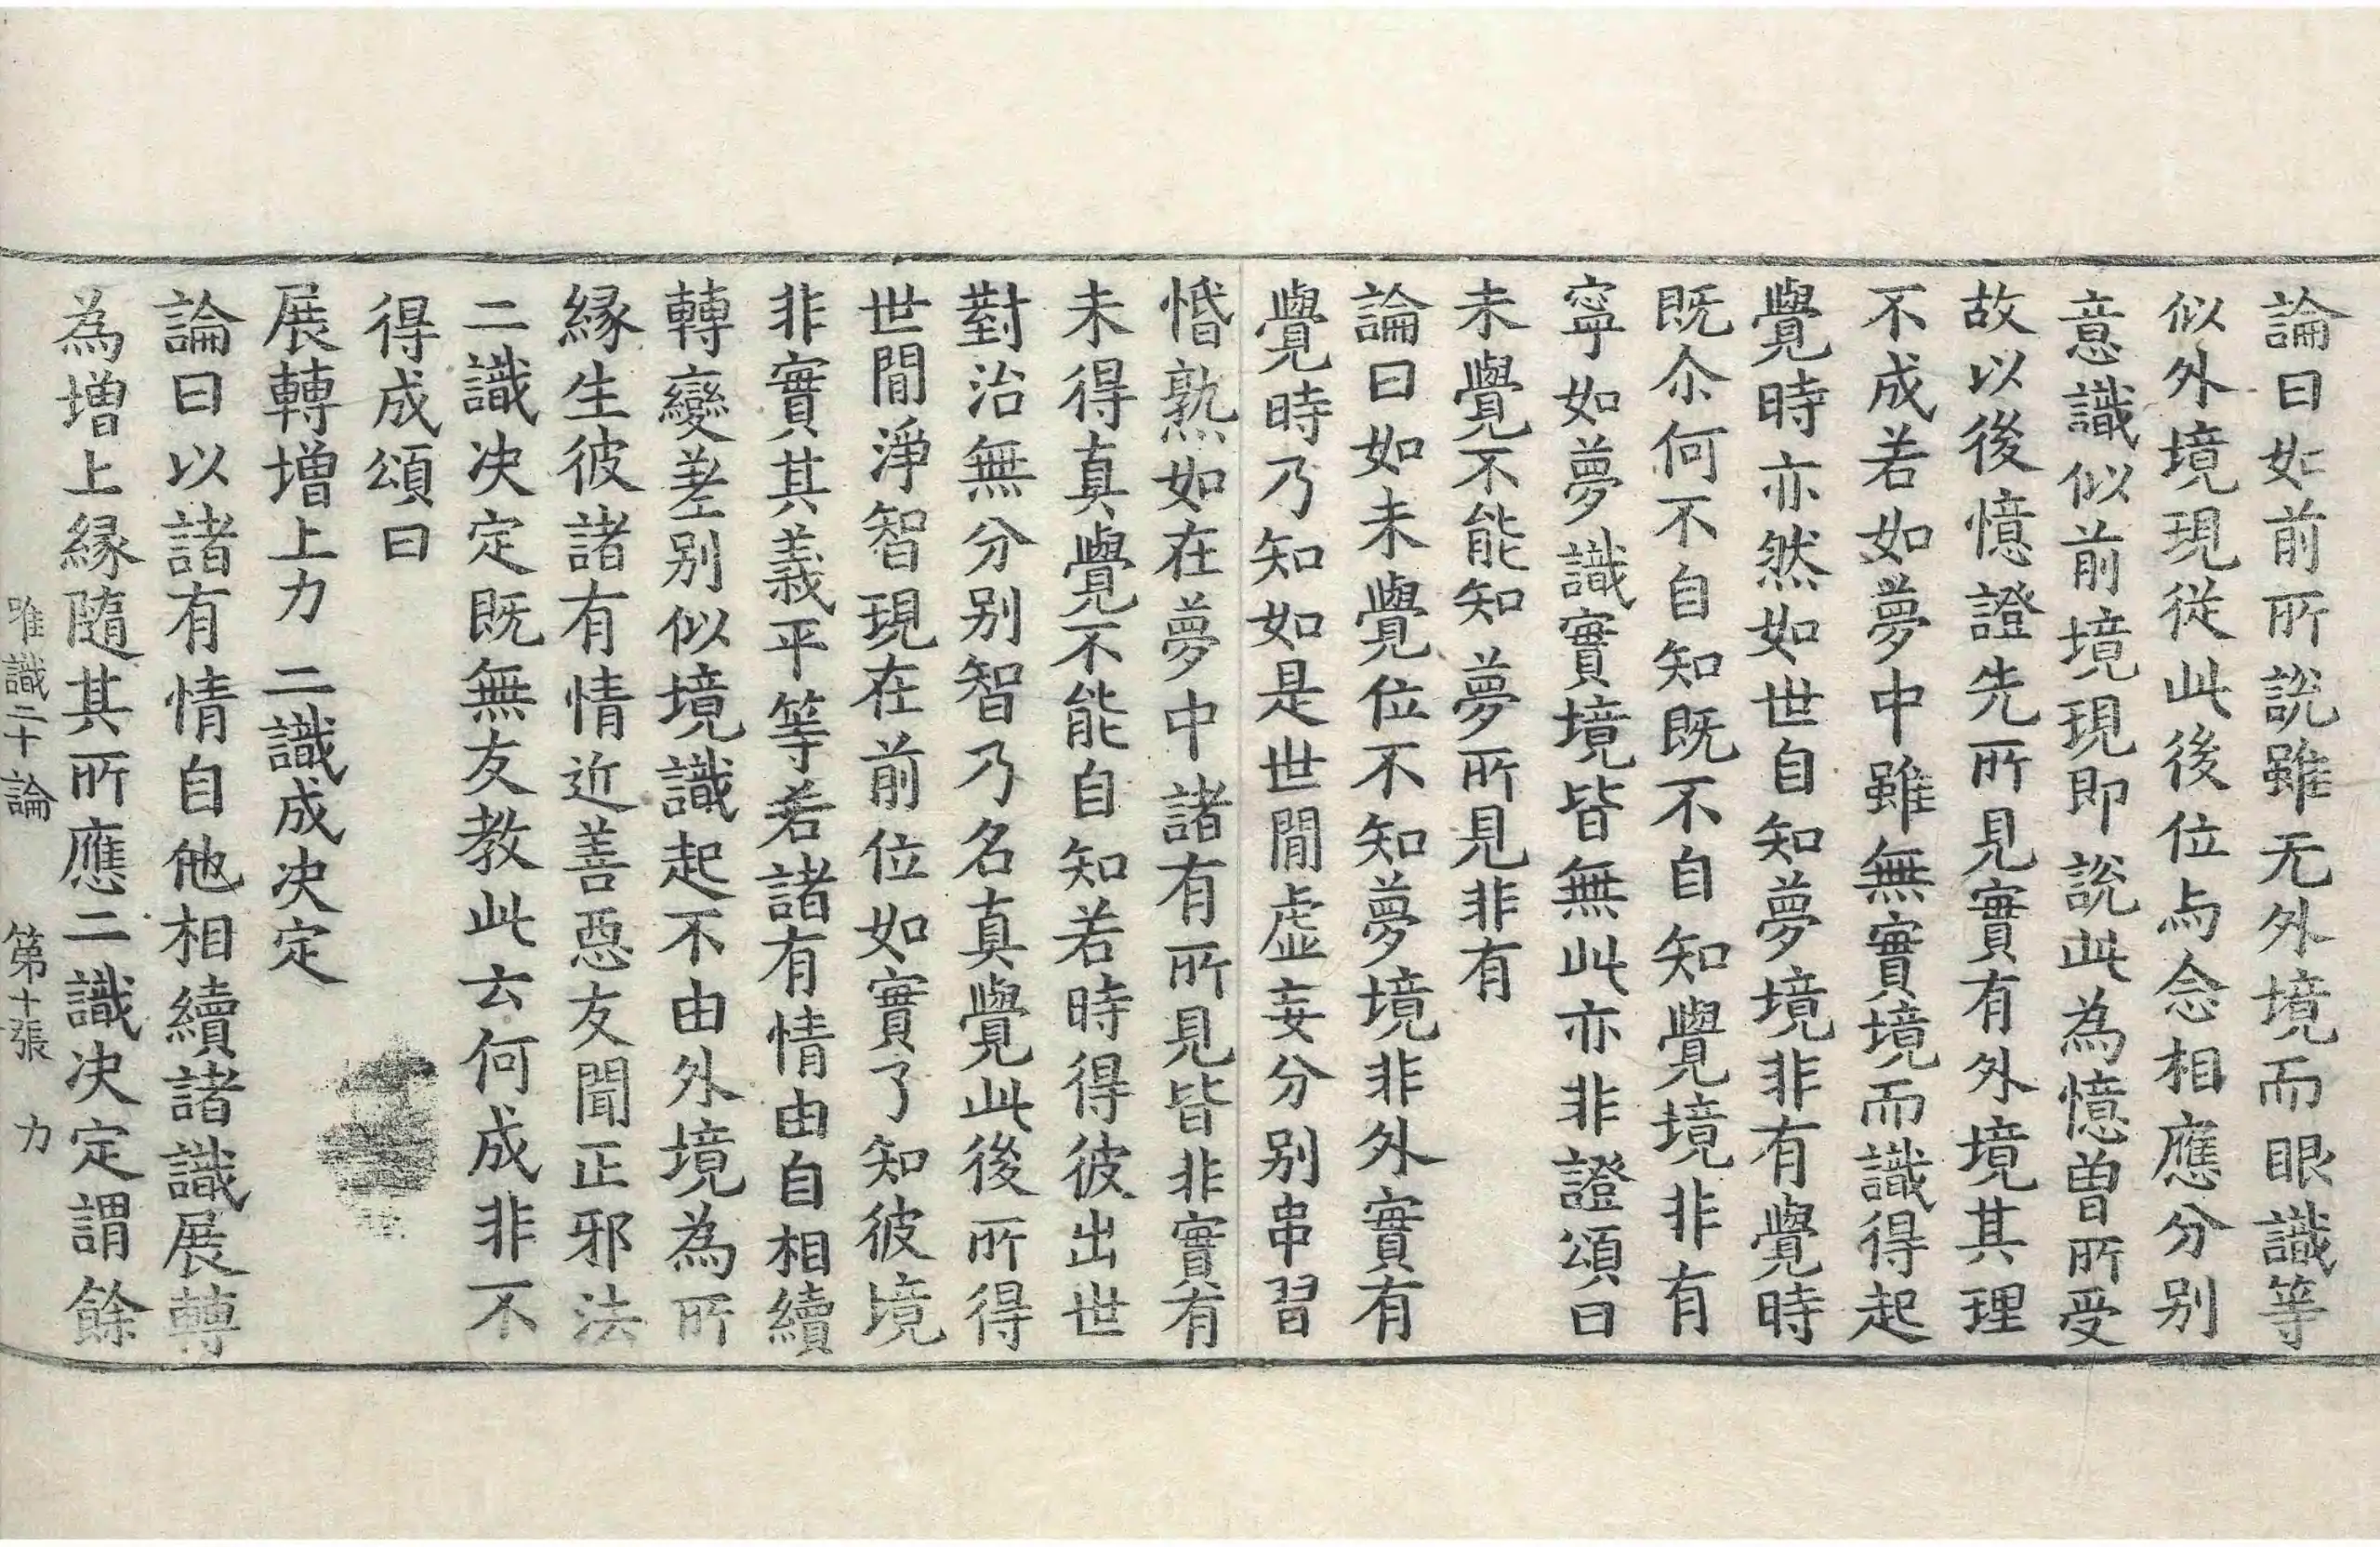 論曰如前所說雖无外境而眼識等
似外境現從此後位与念相應分别
意識似前境現即說此為憶曽所受
故以後憶證先所見實有外境其理
不成若如夢中雖無實境而識得起
覺時亦然如世自知夢境非有覺時
既尒何不自知既不自知覺境非有
寧如夢識實境皆無此亦非證頌曰
未覺不能知 夢所見非有
論曰如未覺位不知夢境非外實有
覺時乃知如是世閒虛妄分别串習
惛熟如在夢中諸有所見皆非實有
未得真覺不能自知若時得彼出世
對治無分别智乃名真覺此後所得
世閒淨智現在前位如實了知彼境
非實其義平等若諸有情由自相續
轉變差别似境識起不由外境為所
緣生彼諸有情近善惡友聞正邪法
二識决定既無友教此云何成非不
得成頌曰
展轉增上力 二識成决定
論曰以諸有情自他相續諸識展轉
為增上緣隨其所應二識决定謂餘
唯識二十論 第十張 力